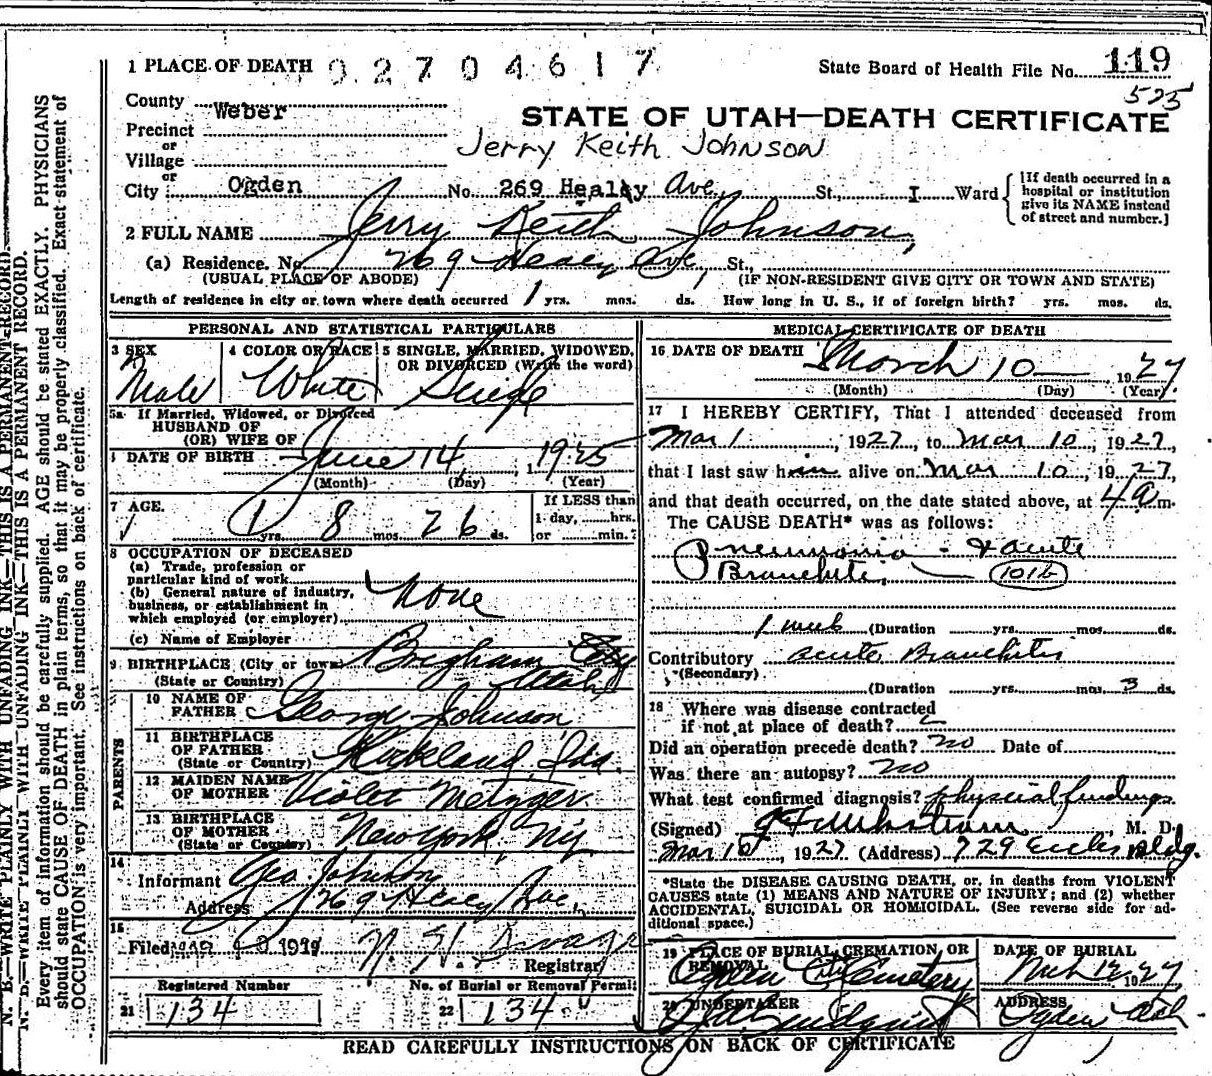 1 PLACE OF DEATH 92704617 State Board of Health File No. 119
525
County Weber
STATE OF UTAH—DEATH CERTIFICATE
Precinct
or
Village
Jerry Keith Johnson
or
City Ogden No. 269 Healey Ave. St., I Ward
[If death occurred in a hospital or institution give its NAME instead of street and number.]
2 FULL NAME Jerry Keith Johnson,
(a) Residence. No. 269 Healey Ave, St.,
(USUAL PLACE OF ABODE) (IF NON-RESIDENT GIVE CITY OR TOWN AND STATE)
Length of residence in city or town where death occurred 1 yrs. mos. ds. How long in U. S., if of foreign birth? yrs. mos. ds.
PERSONAL AND STATISTICAL PARTICULARS
3 SEX 4 COLOR OR RACE 5 SINGLE, MARRIED, WIDOWED, OR DIVORCED (Write the word)
Male White Single
5a If Married, Widowed, or Divorced
HUSBAND OF
(OR) WIFE OF
DATE OF BIRTH June 14, 1925
(Month) (Day) (Year)
7 AGE. 1 yrs. 8 mos. 26 ds.
If LESS than
1 day, hrs.
or min.?
8 OCCUPATION OF DECEASED
(a) Trade, profession or
particular kind of work
(b) General nature of industry,
business, or establishment in
which employed (or employer)
none
(c) Name of Employer
9 BIRTHPLACE (City or town) Brigham City
(State or Country) Utah
PARENTS
10 NAME OF FATHER George Johnson
11 BIRTHPLACE OF FATHER Ida.
(State or Country)
12 MAIDEN NAME OF MOTHER Violet Metzger
13 BIRTHPLACE OF MOTHER New York, Ny
(State or Country)
14
Informant Geo Johnson
Address 269 Healey Ave,
15
Filed
Registrar
Registered Number No. of Burial or Removal Permit
21 134 22 134
MEDICAL CERTIFICATE OF DEATH
16 DATE OF DEATH March 10 1927
(Month) (Day) (Year)
17 I HEREBY CERTIFY, That I attended deceased from
Mar 1, 1927, to Mar 10, 1927,
that I last saw him alive on Mar 10, 1927,
and that death occurred, on the date stated above, at 4 a m.
The CAUSE DEATH* was as follows:
Pneumonia - & acute
Bronchitis, 101b
1 week (Duration yrs. mos. ds.
Contributory acute Bronchitis
(Secondary)
(Duration yrs. mos. 3 ds.
18 Where was disease contracted
if not at place of death?
Did an operation precede death? no Date of
Was there an autopsy? no
What test confirmed diagnosis? physical findings
(Signed) , M. D.
Mar 10, 1927 (Address) 729 Eccles Bldg.
*State the DISEASE CAUSING DEATH, or, in deaths from VIOLENT
CAUSES state (1) MEANS AND NATURE OF INJURY; and (2) whether
ACCIDENTAL, SUICIDAL OR HOMICIDAL. (See reverse side for additional space.)
19 PLACE OF BURIAL, CREMATION, OR REMOVAL DATE OF BURIAL
Ogden City Cemetery Mch 12 1927
20 UNDERTAKER ADDRESS
Lindquist Ogden, Utah
READ CAREFULLY INSTRUCTIONS ON BACK OF CERTIFICATE
N. B.—WRITE PLAINLY WITH UNFADING INK—THIS IS A PERMANENT RECORD.
Every item of information should be carefully supplied. AGE should be stated EXACTLY. PHYSICIANS
should state CAUSE OF DEATH in plain terms, so that it may be properly classified. Exact statement of
OCCUPATION is very important. See instructions on back of certificate.